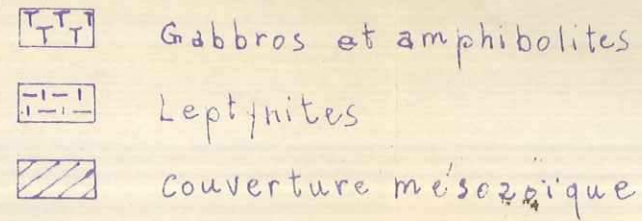 Gabbros et amphibolites
Leptynites
Couverture mésozoïque